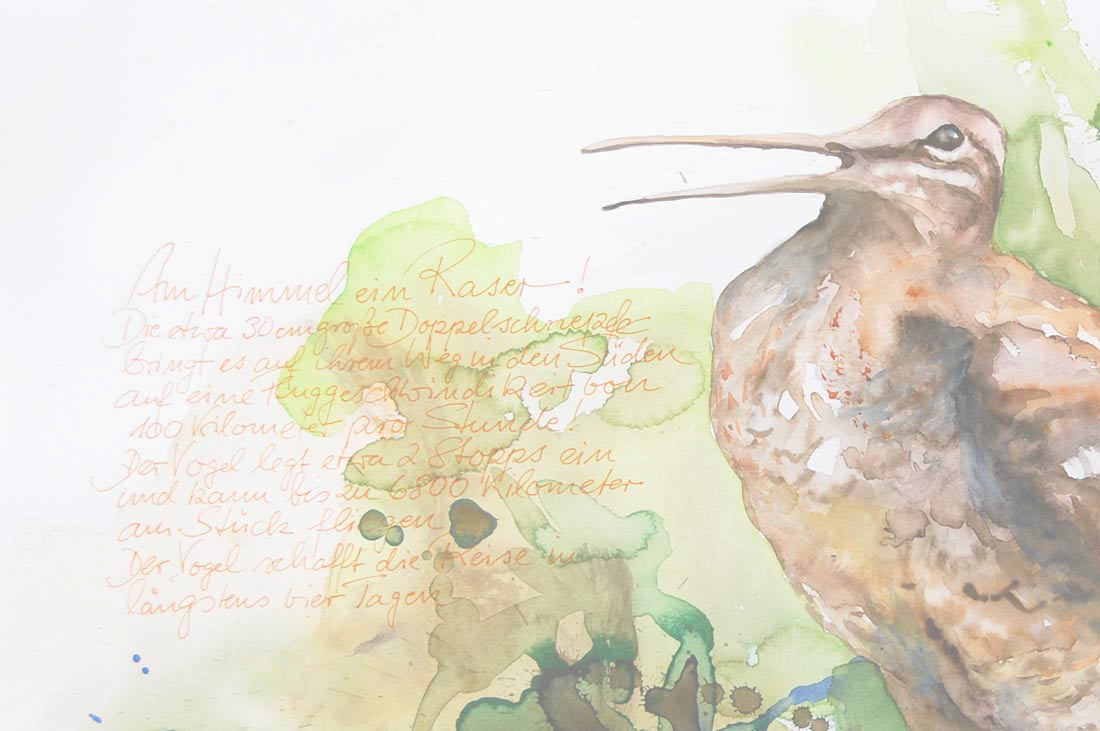 Am Himmel ein Raser!
Die etwa 30 cm große Doppelschnepfe
bringt es auf ihrem Weg in den Süden
auf eine Fluggeschwindikeit von
100 Kilometer pro Stunde
Der Vogel legt etwa 2 Stopps ein
und kann bis zu 6800 Kilometer
am Stück fliegen
Der Vogel schafft die Reise in
längstens vier Tagen